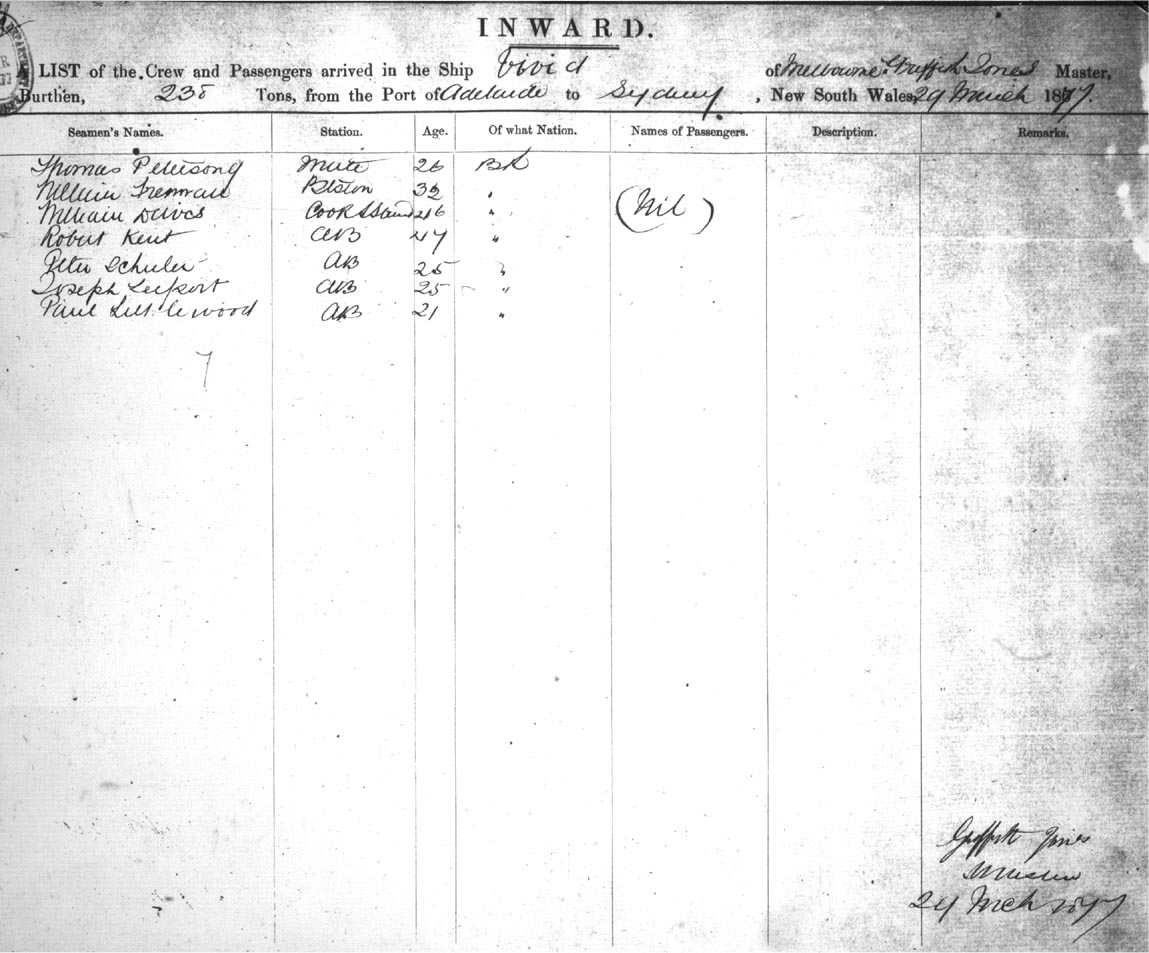 INWARD.
A LIST of the Crew and Passengers arrived in the Ship Vivid of Melbourne. Griffith Jones Master,
Burthen, 238 Tons, from the Port of Adelaide to Sydney, New South Wales, 29 March 1877.
Seamen's Names. Station. Age. Of what Nation. Names of Passengers. Description. Remarks.
Thomas Mate 26
32 "
William Cook & Stew 46 " (Nil)
Robert Kent AB 47 "
Peter Schuler AB 25 "
Joseph AB 25 "
Paul Littlewood AB 21 "
7
Griffith Jones
Master
29 Mch 1877